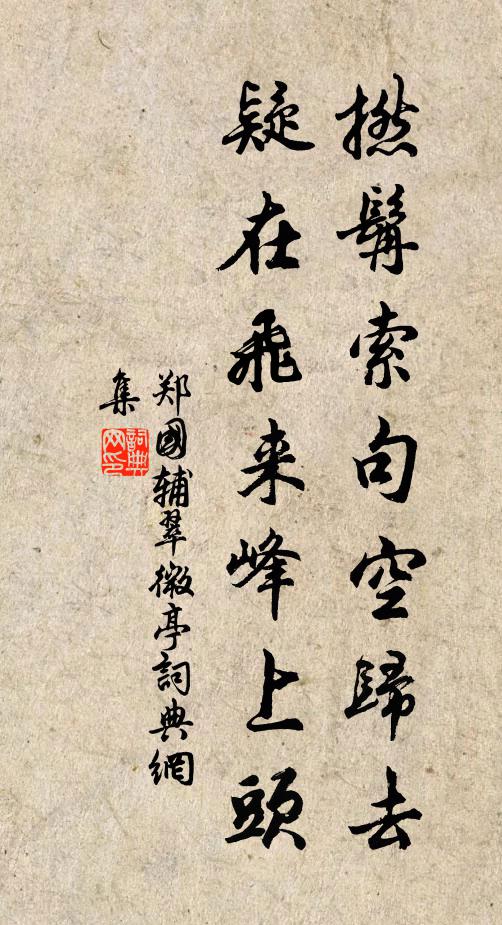 撚髯索句空歸去
疑在飛来峰上頭
郑國辅翠微亭詞典網
集
詞典网印